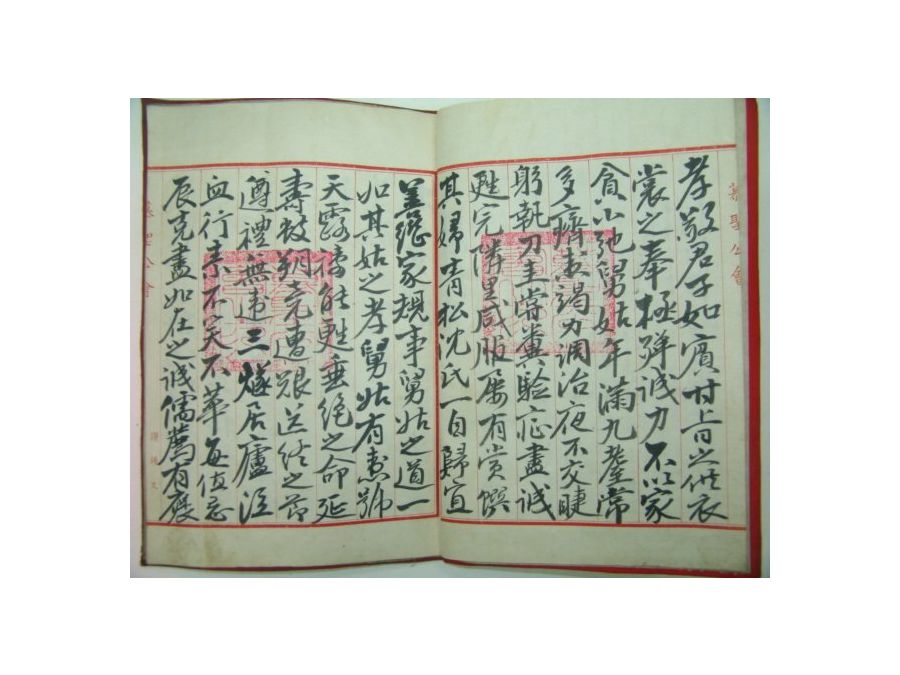 孝敬君子如賓甘旨之供衣
裳之奉極殫誠力不以家
貧小弛舅姑年滿九耋常
多痾恙竭力調治夜不交睫
躬執刀圭嘗糞驗症盡誠
甦完隣里咸服屢有賞饌
其婦靑松沈氏一自歸宜
善繼家規事舅姑之道一
如其姑之孝舅姑有恙號
天露禱能甦垂絶之命延
壽數朔竟遭艱送終之節
遵禮無違三燧居廬泣
血行素不寞不葷每値忌
辰克盡如在之誠儒薦有蹟
慕聖公會